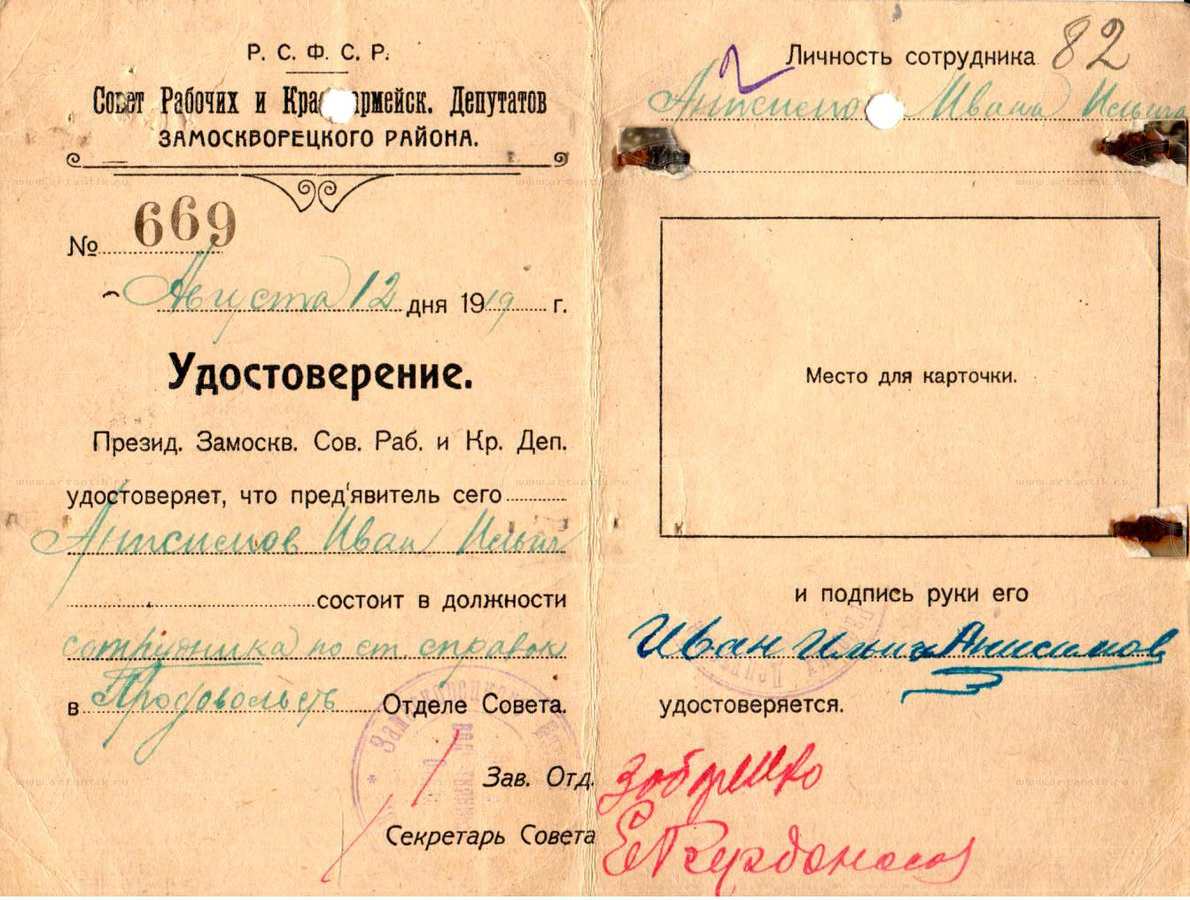 Р. С. Ф. С. Р.
Совет Рабочих и Кра армейск. Депутатов
ЗАМОСКВОРЕЦКОГО РАЙОНА.
№ 669
Августа 12 дня 1919 г.
Удостоверение.
Презид. Замоскв. Сов. Раб. и Кр. Деп.
удостоверяет, что пред'явитель сего
Анисимов Иван Ильич
состоит в должности
сотрудника по ст справок
в Продовольств Отделе Совета.
Зав. Отд.
Секретарь Совета
82
Личность сотрудника
Анисимо Ивана Ильича
Место для карточки.
и подпись руки его
Иван Ильич Анисимов
удостоверяется.
www.artantik.ru